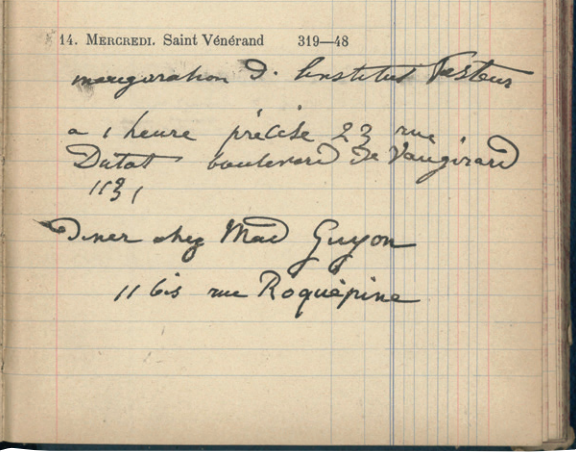 14. MERCREDI. Saint Vénérand 319—48
inauguration d. l'institut Pasteur
a 1 heure précise 23 rue
Dutot boulevard de Vaugirard
diner chez Mad Guyon
11 bis rue Roquépine